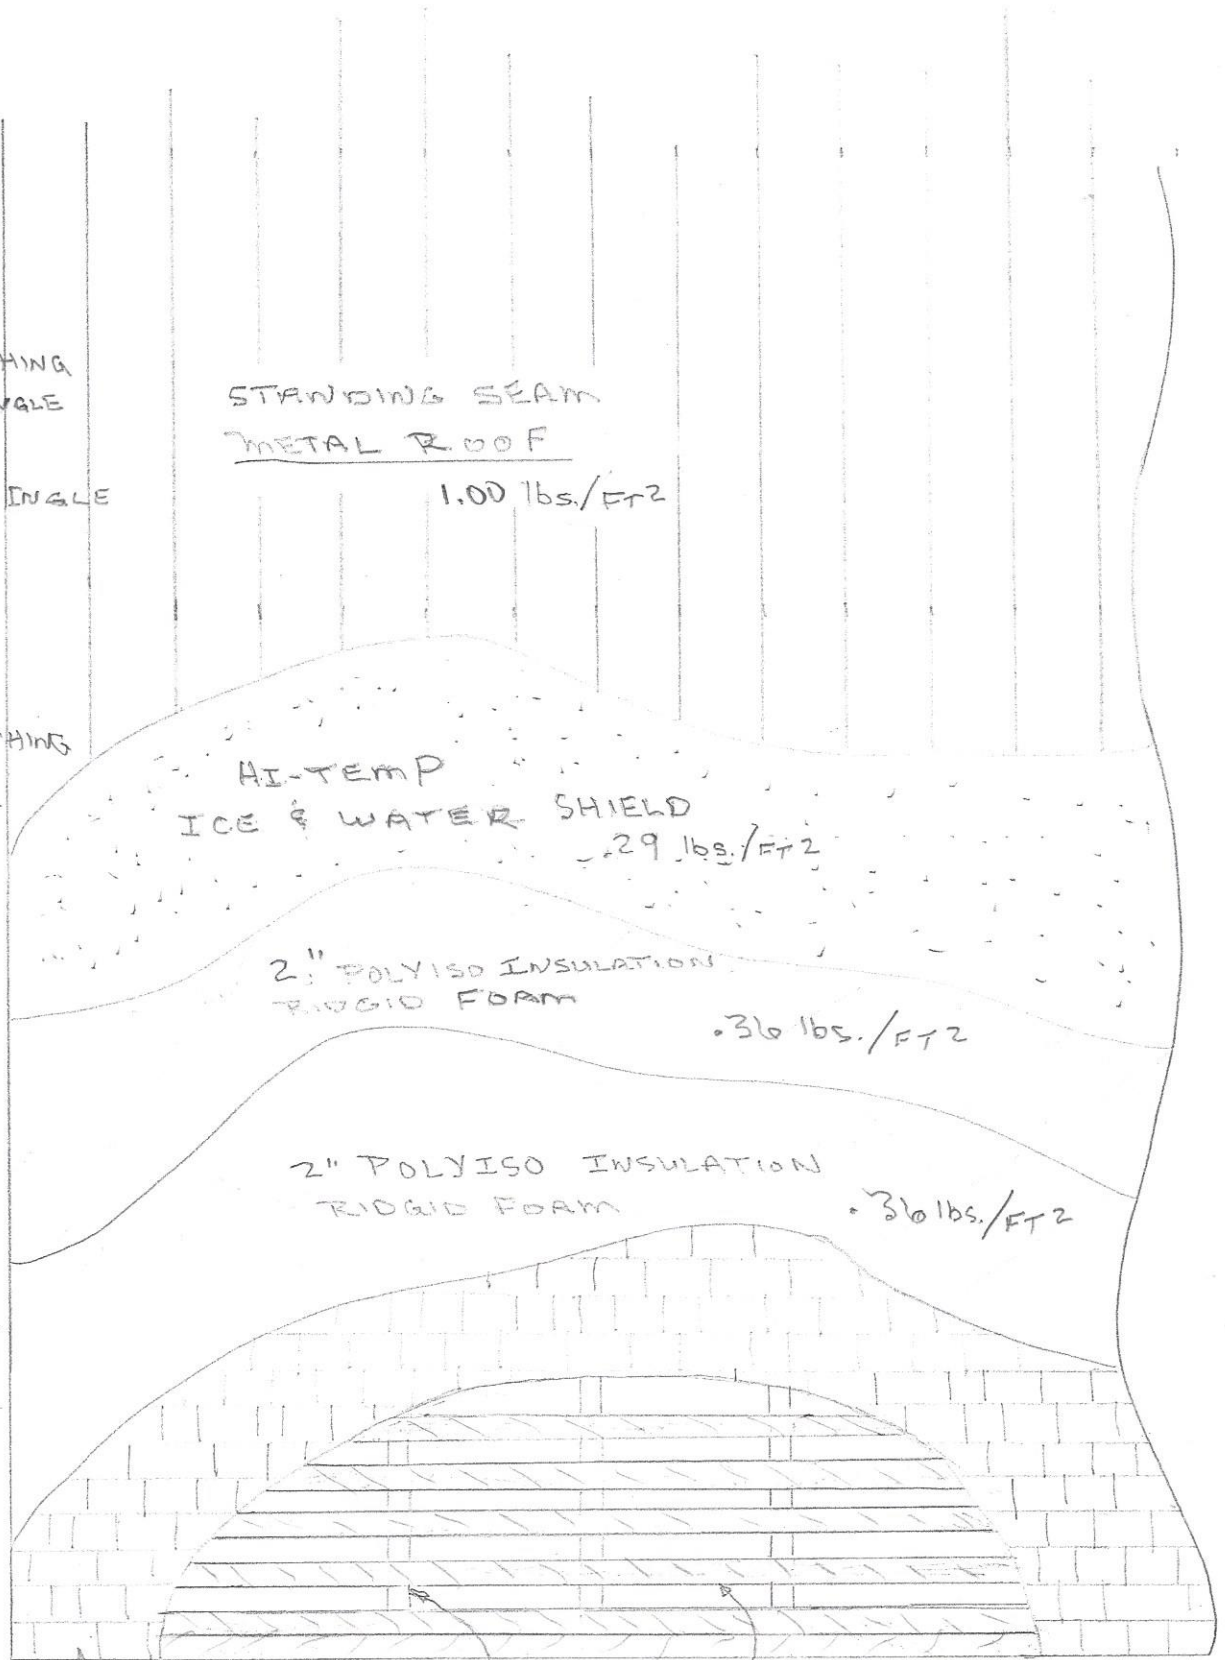 HING
NGLE
INGLE
HING
STANDING SEAM
METAL ROOF
1.00 lbs./FT2
HI-TEMP
ICE & WATER SHIELD
.29 lbs./FT2
2" POLYISO INSULATION
RIDGID FOAM
.36 lbs./FT2
2" POLYISO INSULATION
RIDGID FOAM
.36 lbs./FT2